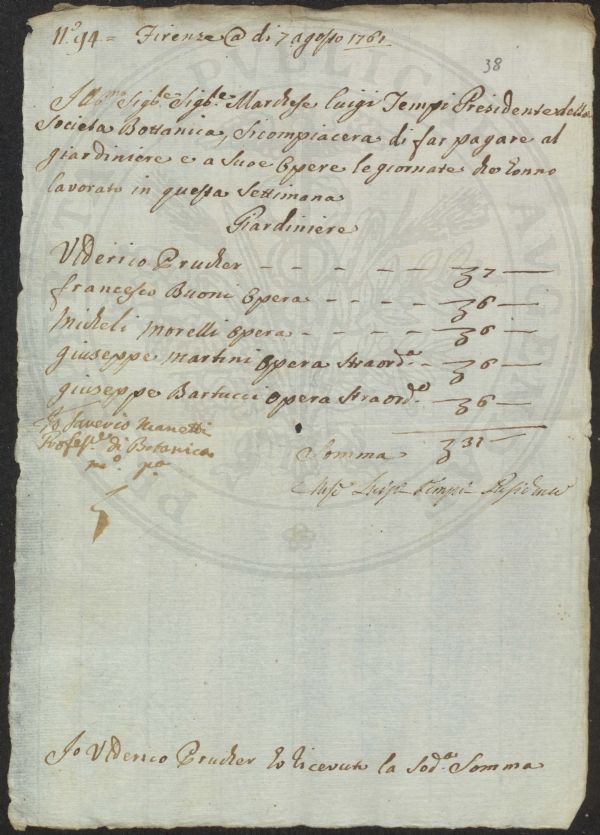 N.° 94 = Firenze @ di 7 agosto 1761
38
Ill.mo Sig.re Sig.re Marchese Luigi Tempi Presidente della
Societa Bottanica, Si compiacera di far pagare al
giardiniere e a Sue Opere le giornate che honno
lavorato in questa Settimana
Giardiniere
Ulderico Prucker - - - - - 7
francesco Buoni Opera - - - - 6
Micheli Morelli opera - - - - 6
giuseppe Martini opera Straord.a - 6
giuseppe Bartucci opera Straord.a - 6
Io Saverio Manetti
Profess.re di Botanica
m.o p.a
Somma 31
Luigi Tempi Presidente
Io Ulderico Prucker ho ricevuto la Sod.a Somma